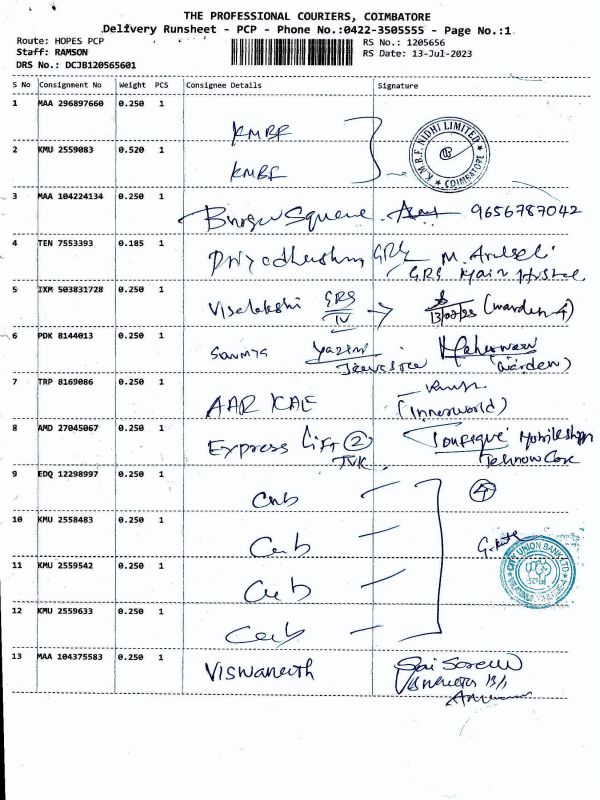 THE PROFESSIONAL COURIERS, COIMBATORE
Delivery Runsheet - PCP - Phone No.:0422-3505555 - Page No.:1
Route: HOPES PCP
Staff: RAMSON
DRS No.: DCJB120565601
RS No.: 1205656
RS Date: 13-Jul-2023
S No Consignment No Weight PCS Consignee Details Signature
1 MAA 296897660 0.250 1 KMBF
K.M.B.F. NIDHI LIMITED
COIMBATORE
2 KMU 2559083 0.520 1 KMBF
3 MAA 104224134 0.250 1 Burger Square 9656787042
4 TEN 7553393 0.185 1 GRG M.
GRG Main Hostel
5 IXM 503831728 0.250 1 Viselakshi GRG
IV
(Warden
6 PDK 8144013 0.250 1 Sowmya
(Warden)
7 TRP 8169086 0.250 1 AAR KAE
(Innerworld)
8 AMD 27045067 0.250 1 Express Lift 2
TVK
9 EDQ 12298997 0.250 1 Cub 4
10 KMU 2558483 0.250 1 Cub
CITY UNION BANK LTD
11 KMU 2559542 0.250 1 Cub
12 KMU 2559633 0.250 1 Cub
13 MAA 104375583 0.250 1 Viswanath